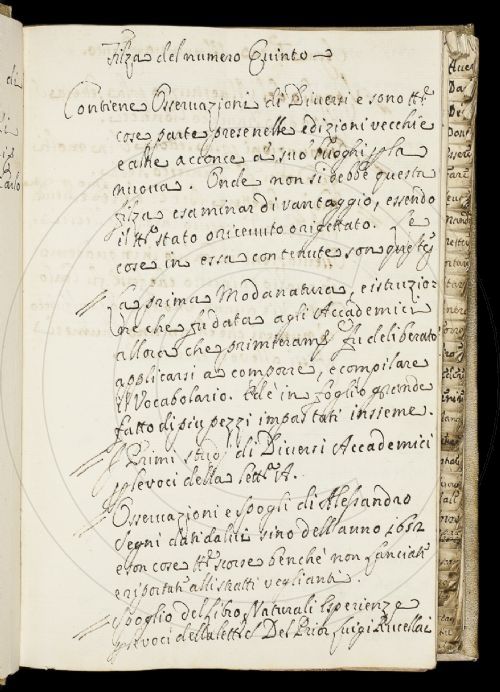 Filza del numero Quinto
Contiene Osservazioni di Diversi e sono tt.e
cose parte prese nelle edizioni vecchie
e altre acconce a suo' luoghi p la
nuova. Onde non si debbe questa
filza esaminar di vantaggio, essendo
il tt.o stato o ricevuto o rigettato. E le
cose in essa contenute son queste
La prima Modanatura, e istruzio
ne che fu data agli Accademici
allora che primieram.e fu deliberato
applicarsi a comporre, e compilare
il Vocabolario. Ed è in foglio grande
fatto di più pezzi impastati insieme.
Primi studi di Diversi Accademici
p le voci della lett.a A.
Osservazioni e spogli di Alessandro
Segni dinidaliti sino dell'anno 1652
e son cose tt.e scorse benchè non
e riportati alli stratti veglianti.
Spoglio del libro Naturali Esperienze
p le voci della lett.a Del Prior Luigi Rucellai
di